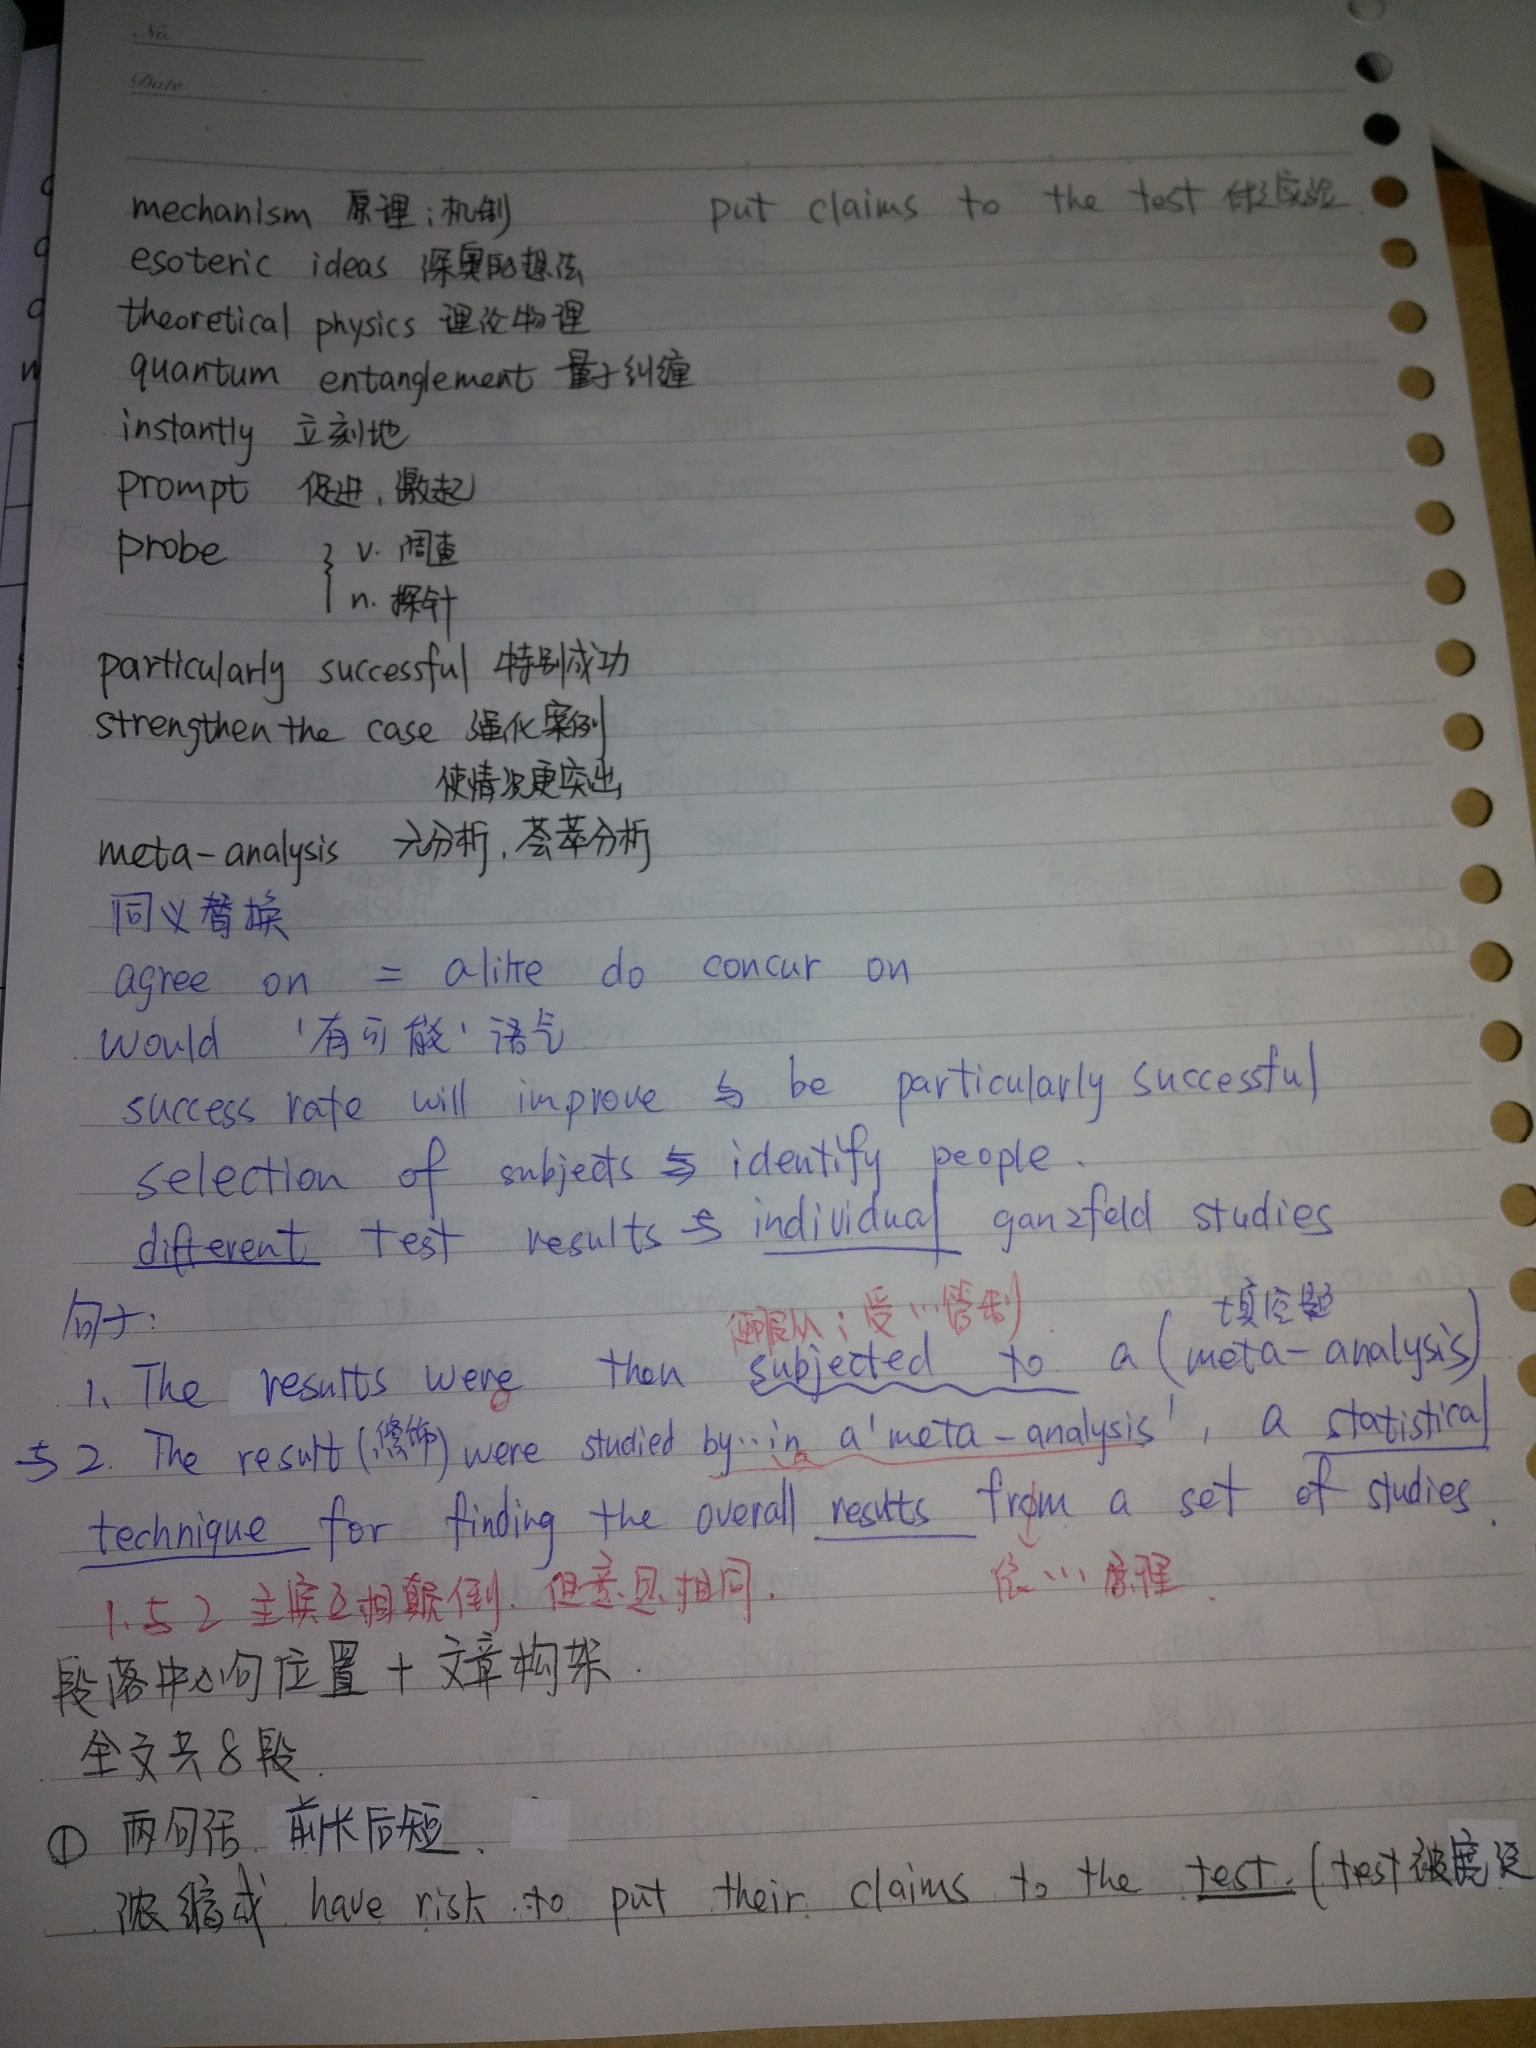 No.
Date
mechanism 原理;机制 put claims to the test 付之实验
esoteric ideas 深奥的想法
theoretical physics 理论物理
quantum entanglement 量子纠缠
instantly 立刻地
prompt 促进,激起
probe v. 调查
n. 探针
particularly successful 特别成功
strengthen the case 强化案例
使情况更突出
meta-analysis 元分析,荟萃分析
同义替换
agree on = alike do concur on
would '有可能'语气
success rate will improve 与 be particularly successful
selection of subjects 与 identify people.
different test results 与 individual ganzfeld studies
句子:
服从;受…管制 填空题
1. The results were then subjected to a (meta-analysis)
与 2. The result (修饰) were studied by… in a 'meta-analysis', a statistical
technique for finding the overall results from a set of studies.
1.与2 主宾互相颠倒.但意思相同.
段落中心句位置 + 文章构架.
全文共8段.
① 两句话 前长后短.
浓缩成 have risk to put their claims to the test. (test被